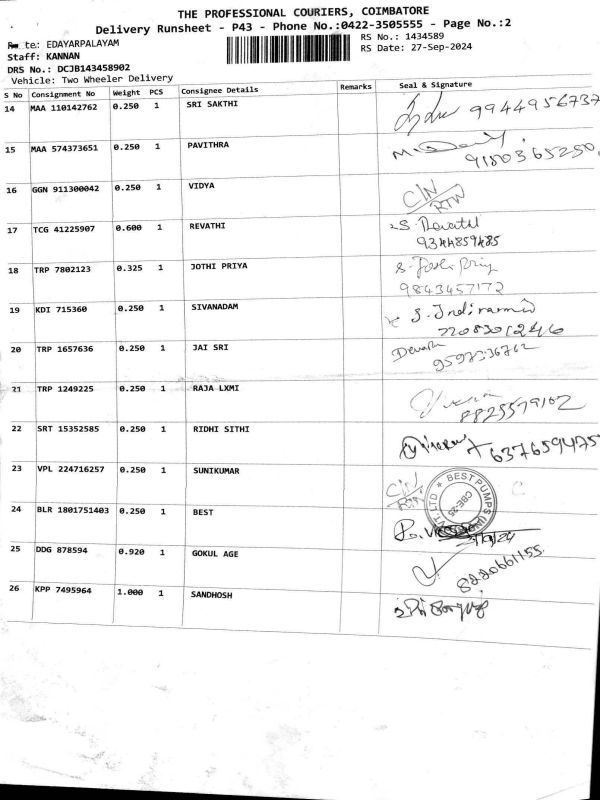 THE PROFESSIONAL COURIERS, COIMBATORE
Delivery Runsheet - P43 - Phone No.:0422-3505555 - Page No.:2
Route: EDAYARPALAYAM RS No.: 1434589
Staff: KANNAN RS Date: 27-Sep-2024
DRS No.: DCJB143458902
Vehicle: Two Wheeler Delivery
S No Consignment No Weight PCS Consignee Details Remarks Seal & Signature
14 MAA 110142762 0.250 1 SRI SAKTHI 9944956737
15 MAA 574373651 0.250 1 PAVITHRA
16 GGN 911300042 0.250 1 VIDYA C/N
RTN
17 TCG 41225907 0.600 1 REVATHI S. Revathi
9344859485
18 TRP 7802123 0.325 1 JOTHI PRIYA
9843457172
19 KDI 715360 0.250 1 SIVANADAM
20 TRP 1657636 0.250 1 JAI SRI
21 TRP 1249225 0.250 1 RAJA LXMI
22 SRT 15352585 0.250 1 RIDHI SITHI
23 VPL 224716257 0.250 1 SUNIKUMAR C/N
RTN
BEST PUMPS
CBE-25
24 BLR 1801751403 0.250 1 BEST
25 DDG 878594 0.920 1 GOKUL AGE 8220661155
26 KPP 7495964 1.000 1 SANDHOSH